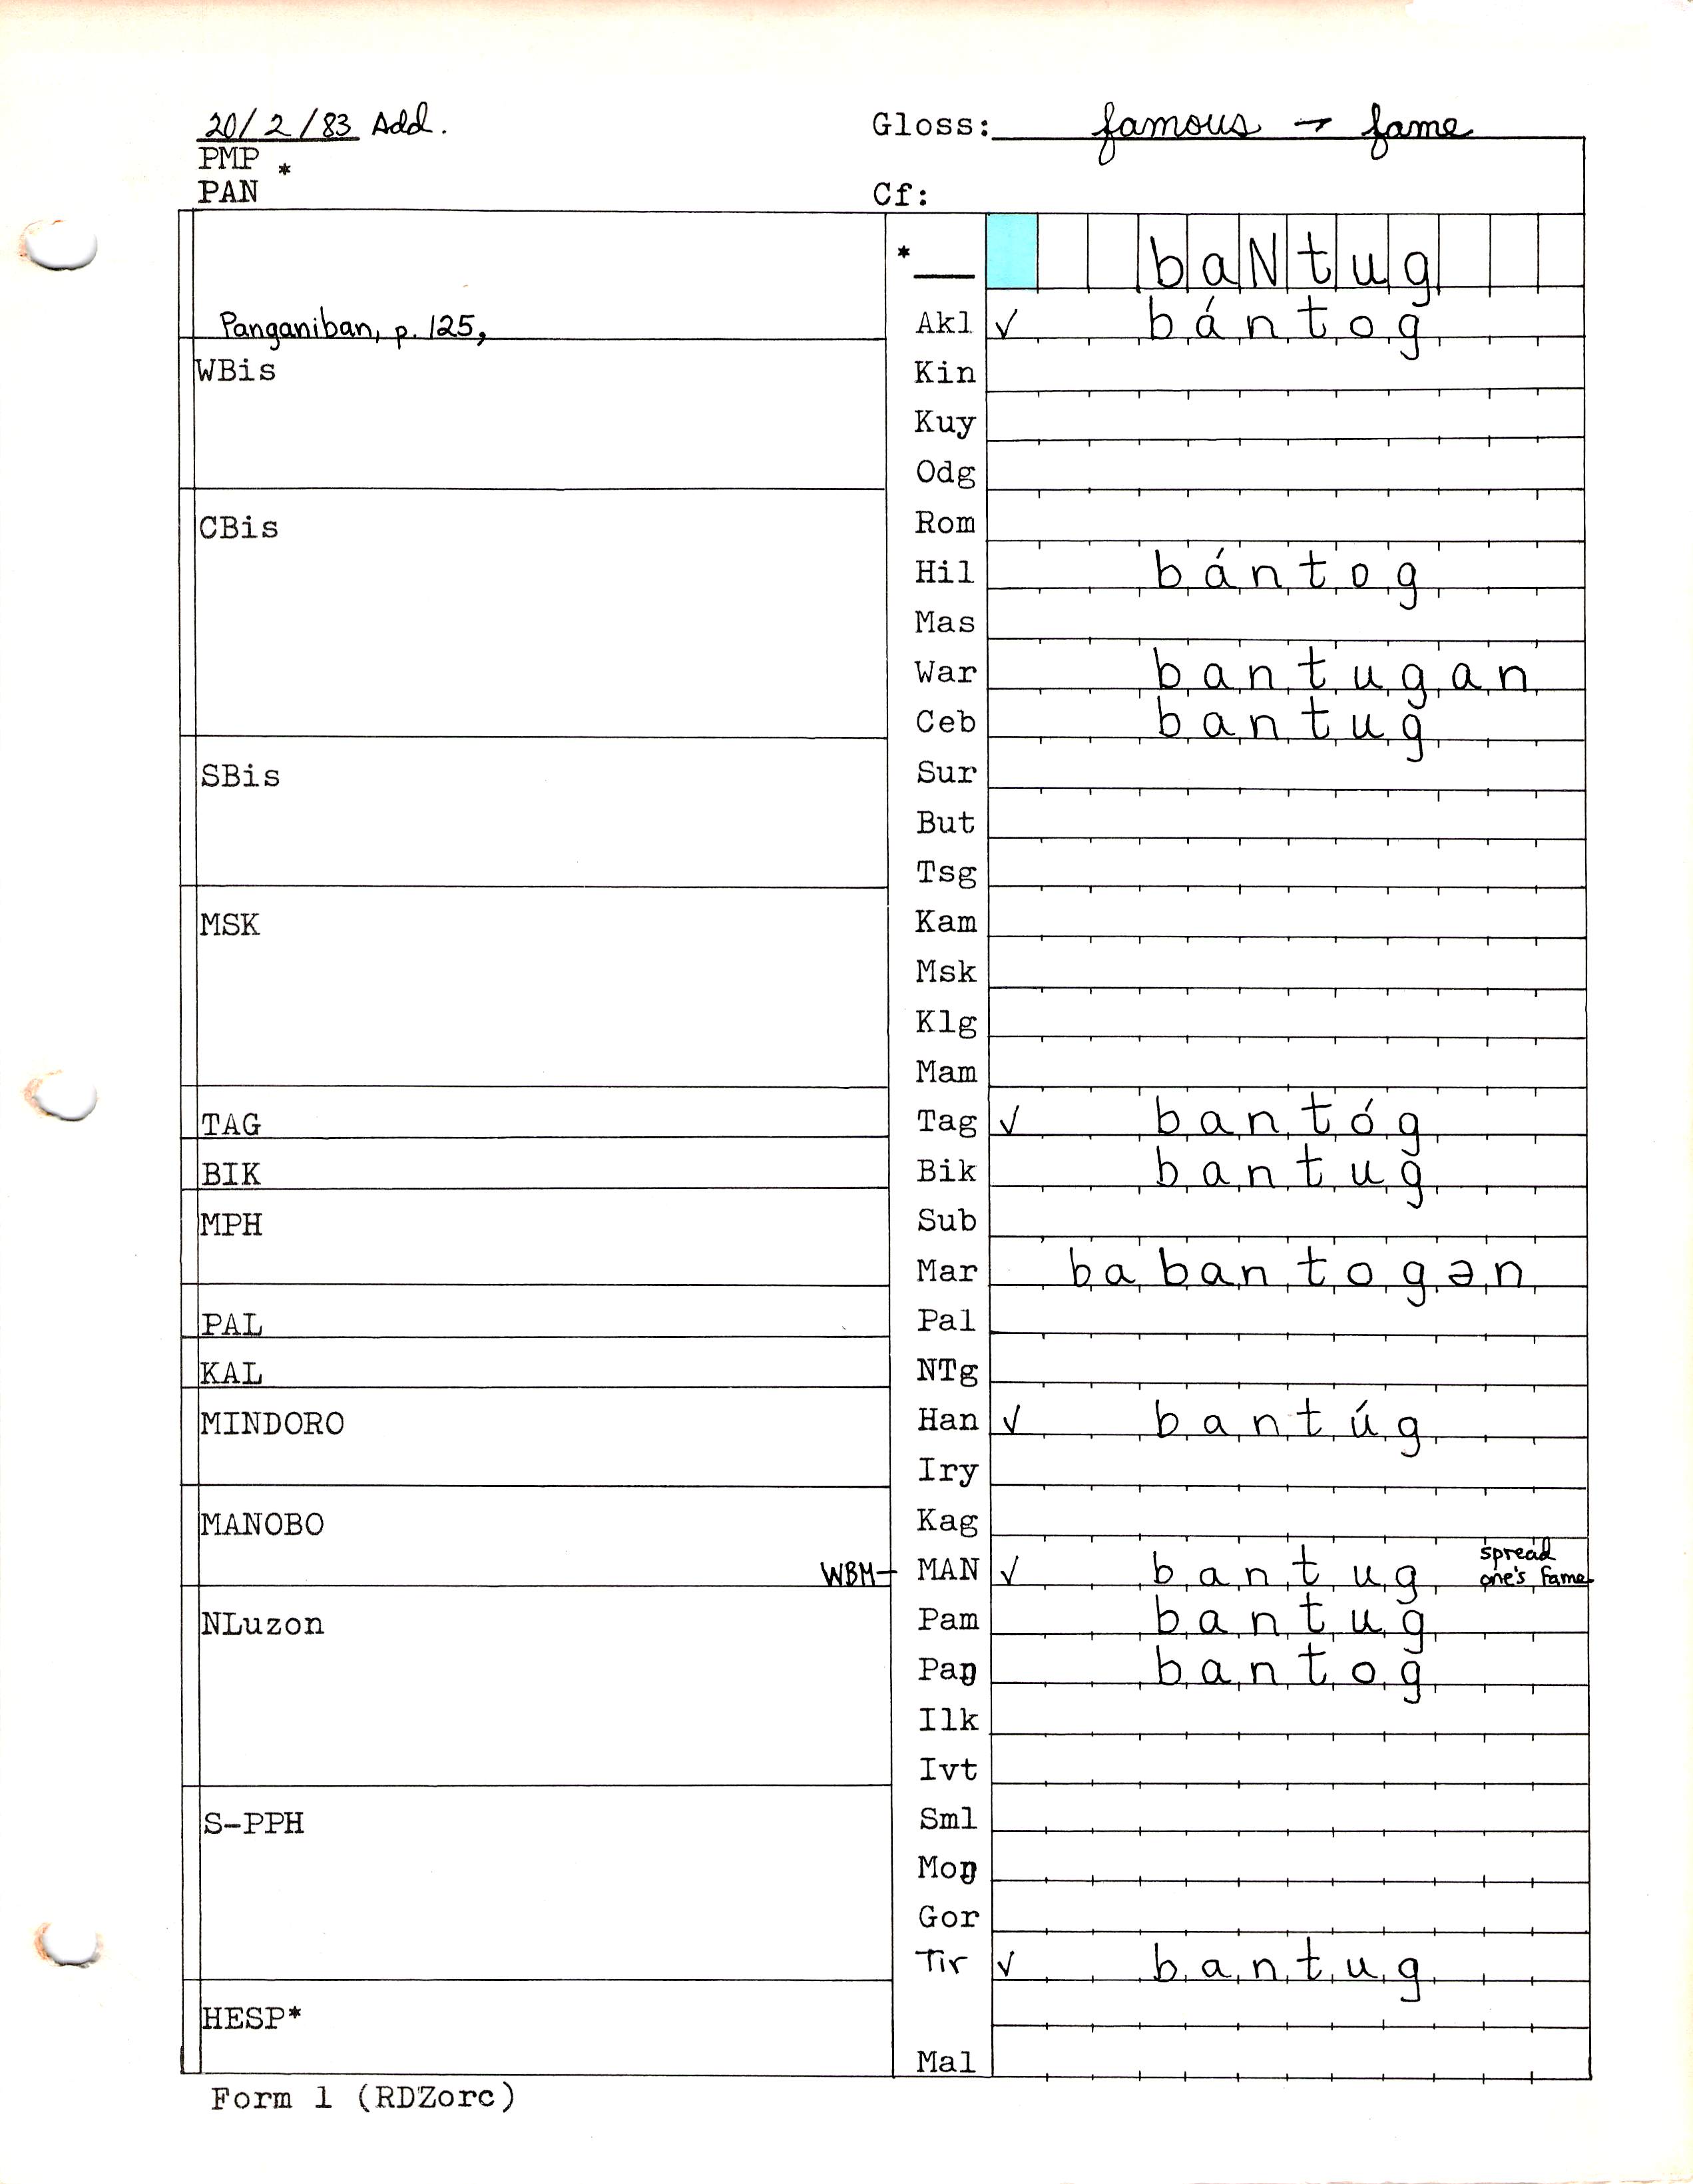 20/2/83 Add. Gloss: famous → fame
PMP *
PAN Cf:
* baNtug
Panganiban, p. 125, Akl ✓ bántog
WBis Kin
Kuy
Odg
CBis Rom
Hil bántog
Mas
War bantugan
Ceb bantug
SBis Sur
But
Tsg
MSK Kam
Msk
Klg
Mam
TAG Tag ✓ bantóg
BIK Bik bantug
MPH Sub
Mar babantogən
PAL Pal
KAL NTg
MINDORO Han ✓ bantúg
Iry
MANOBO Kag
WBM- MAN ✓ bantug spread
one's fame
NLuzon Pam bantug
Paŋ bantog
Ilk
Ivt
S-PPH Sml
Moŋ
Gor
Tir ✓ bantug
HESP*
Mal
Form 1 (RDZorc)